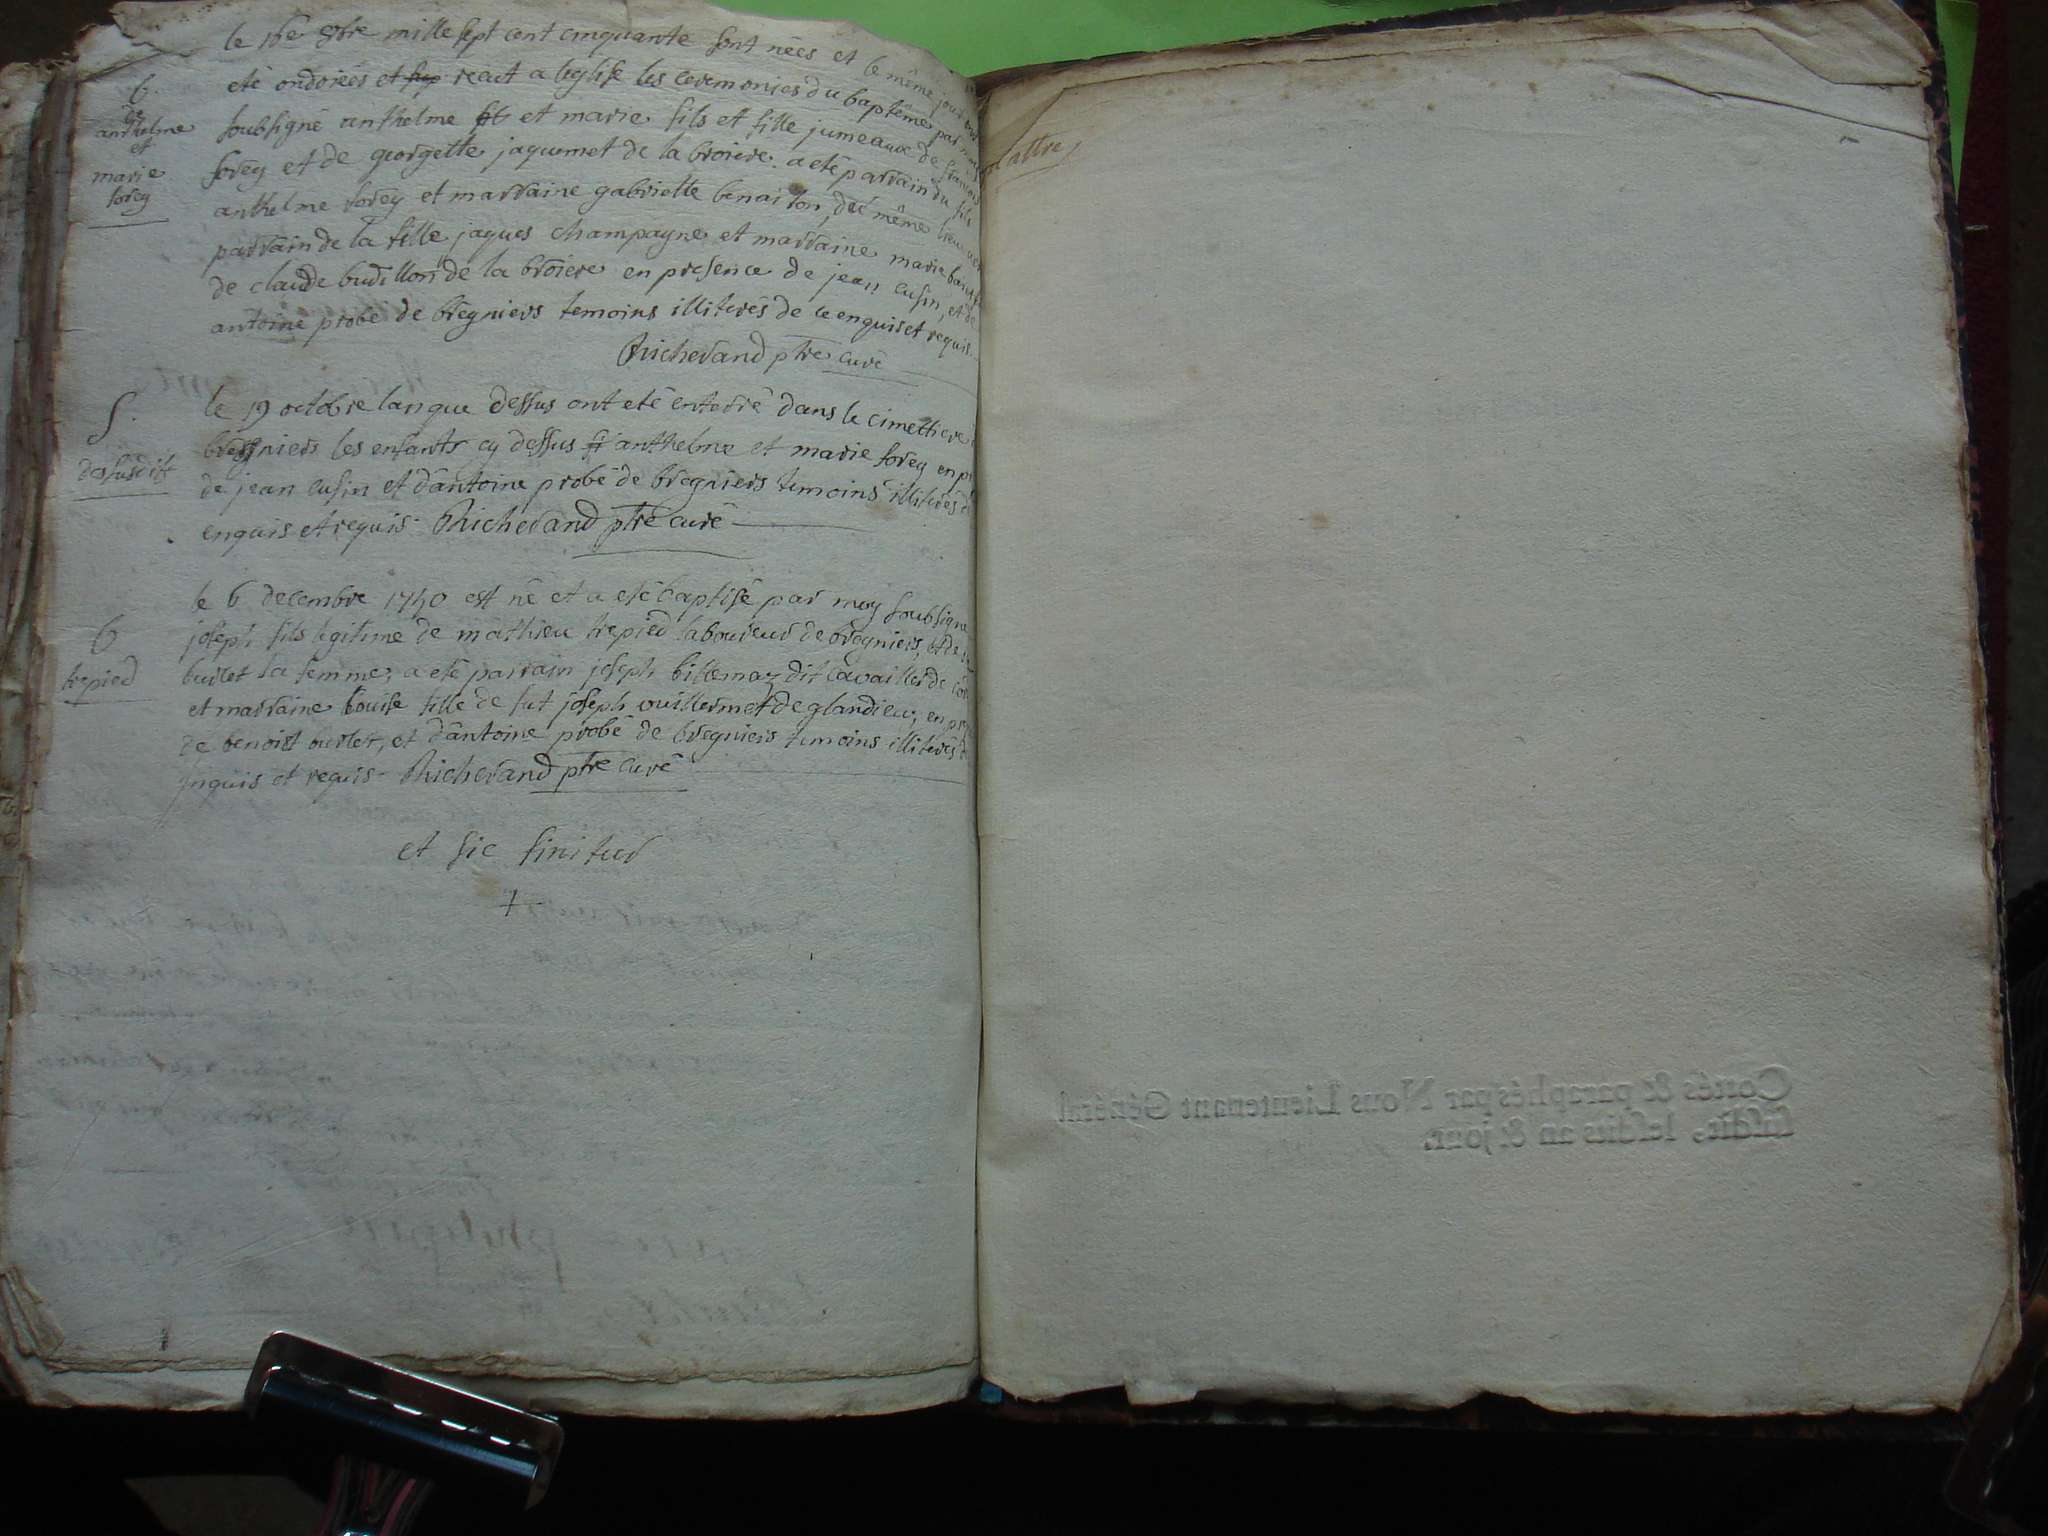 le 16e 8bre mille sept cent cinquante sont nées et le même jour ont
eté ondoiées et recut a leglise les ceremonies du bapteme par moy
B.
de
anthelme
et
marie
sorey
soubsigné anthelme et marie fils et fille jumeaux de francois
sorey et de georgette jaquemet de la broiere. a eté parrain du fils
anthelme sorey et marraine gabrielle benaiton, du même lieu
parrain de la fille jaques champagne et marraine marie
de claude budillon de la broiere en presence de jean cusin, et de
antoine probé de brègniers temoins illiterés de ce enquis et requis.
Richerand ptre curé
S.
des susdits
le 19 octobre lan que dessus ont eté enterré dans le cimettiere
bregniers les enfants cy dessus anthelme et marie sorey en
de jean cusin et dantoine probé de bregniers temoins illiterés
enquis et requis. Richerand ptre curé
B
trepied
le 6 decembre 1750 est né et a eté baptisé par moy soubsigné
joseph fils legitime de mathieu trepied laboureur de bregniers, et de
burlet sa femme; a eté parrain joseph billemaz dit cavaillet de
et marraine louise fille de fut joseph vuillermet de glandieu, en
de benoist burlet, et dantoine probé de bregniers temoins illiterés
Inquis et requis. Richerand ptre curé
et sic finitur
+
Cottés & paraphés par Nous Lieutenant Général
susdit, lesdits an & jour.